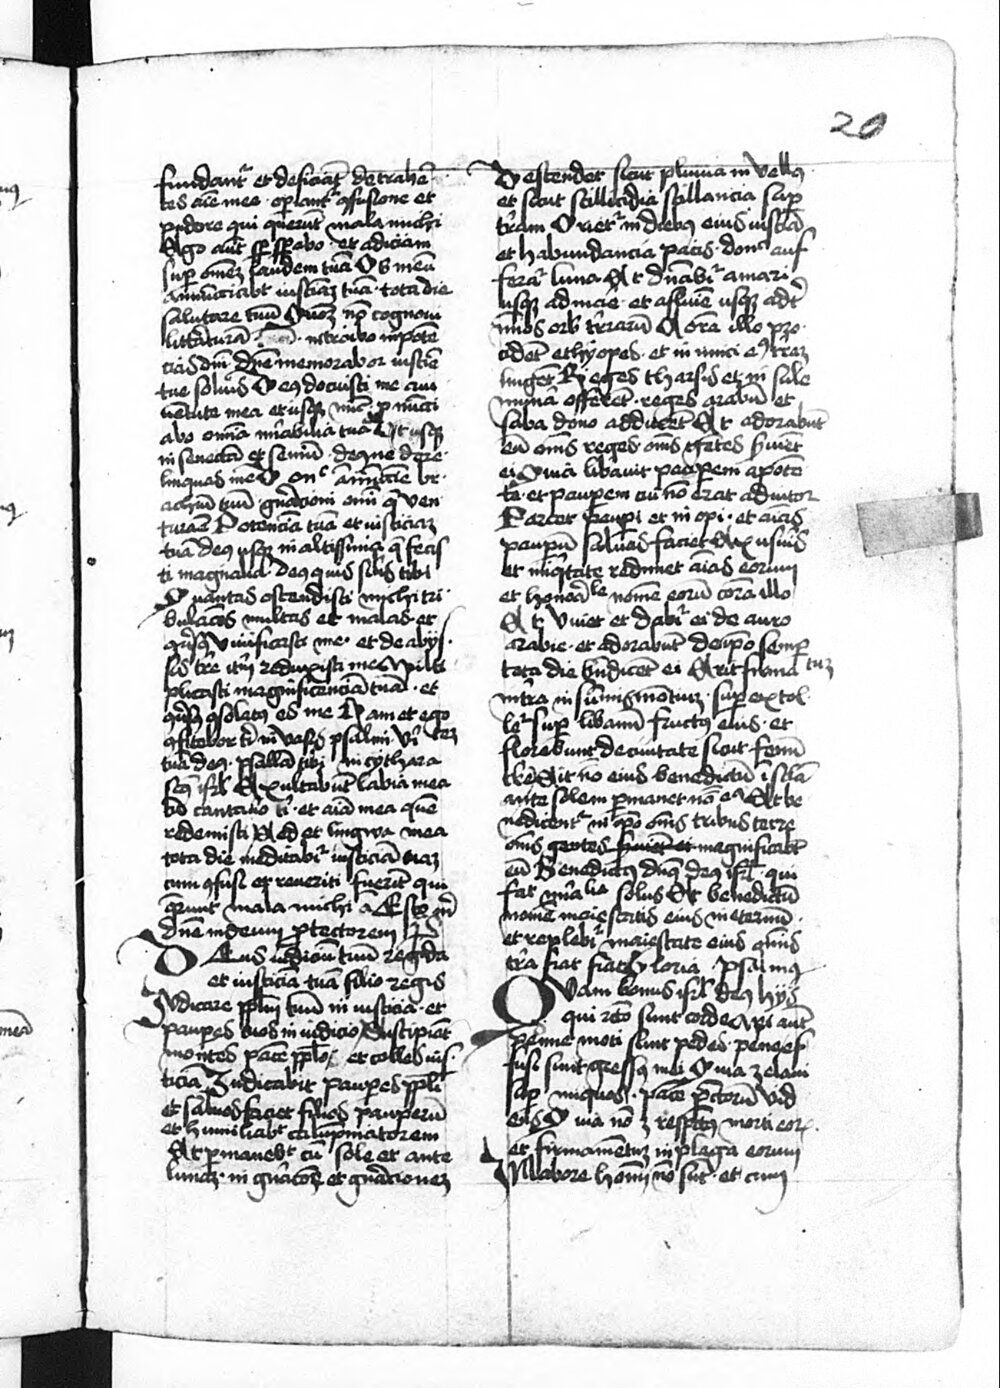 20
fundant᷑ et deficiāt detrahē
tes aīe mee · opiant᷑ ꝯfusione et
pudore qui querūt mala michi
Ego aūt sp̄ sꝑabo · et adiciam
suꝑ omēz laudem tuā Os meū
annūciabt iusticiaz tuā · tota die
salutare tuū Quoz nō cognoui
litt̄aturā · introibo in potē
cias dn̄i dn̄e memorabor iusticie
tue solius Deꝯ docuisti me a iu
uētute mea et usqꝫ nūc ꝓnūci
abo omīa mirabilia tua Et usqꝫ
in senectā et seniū · deꝯ ne dere
linquas me Donᶜ ānūciē br
achiū tuū · gn̄acioni omī q̄ ven
tura ē Potencia tuā et iusticiaz
tuā deꝯ usqꝫ in altissima q̄ fecis
ti magnalia deꝯ quis sil̄is tibi
Quantas ostendisti michi tri
bulacōes multas et malas · et
ꝯūsꝯ viuificasti me · et de abijs
sis tr̄e itꝝ reduxisti me Multi
plicasti magnificenciā tuā · et
ꝯūsꝯ ꝯsolatꝯ es me Nam et ego
ꝯfitebor ti in vasis psalmi vītez
tuā deꝯ · psallā tibi in cythara
sc̄ꝯ isrl̄ Exultabūt labia mea
cū cantauo ti · et aīa mea quē
redemisti Sed et lingwa mea
tota die meditabi᷑ iusticiā tuaz
cum ꝯfusi et reueriti fuerīt qui
querunt mala michi a Esto m̄
dn̄e in deum ꝓtectorem Ps
Deus iudiciū tuū regi da
et iusticiā tuā filio regis
Judicare pplm̄ tuū in iusticia · et
pauꝑes tuos in iudicio Suscipiāt
montes pacē ppl̄o · et colles ius
ticiā Judicabit pauꝑes ppl̄i
et saluos faciet filios pauperū
et humiliabt calūpniatorem
Et ꝑmanebt cū sole et ante
lunaz · in gn̄acōe et gn̄acionez
Descendet sicut pluuia in vellꝯ
et sicut stillicidia stillancia suꝑ
tr̄am Oriet᷑ in diebꝯ eius iusticia
et habundancia pacis · donᶜ auf
fera᷑ luna Et dn̄abi᷑ a mari
usqꝫ ad mare · et a flumīe usqꝫ ad t̄
mīos orb tr̄arū Corā illo pro
cidēt ethyopes · et inimici eꝯ tr̄az
lingēt Reges tharsis et insule
munera offerēt · reges arabū et
saba dona adducēt Et adorabūt
eū om̄s reges · om̄s gentes ẜuiēt
ei Quia liberauit pauꝑem a potē
te · et pauꝑem cui nō erat adiutor
Parcet pauꝑi et inopi · et aīas
pauꝑū saluas faciet Ex usuris
et iniqͥtate redimet aīas eorum
et honorabile nomē eorū corā illo
Et viuet et dabi᷑ ei de auro
arabie · et adorabūt de ip̄o semꝑ
tota die bn̄dicēt ei Erit firmamentuz
in tr̄a in sūmis montiuz · suꝑextol
let᷑ suꝑ libanū fructꝯ eius · et
florebunt de ciuitate sicut fenū
tr̄e Sit nomē eius benedictū in scl̄a
ante solem ꝑmanet nōē eꝯ Et be
nedicent᷑ in ip̄o om̄s tribus terre
om̄s gentes magnificabt
eū Benedictꝯ dn̄s deꝯ isrl̄ · qui
facit mīrabilia solus Et benedictū
nomē maiestatis eius in eternū
et replebi᷑ maiestate eius omīs
tr̄a fiat fiat Gloria psalmꝯ
Quam bonus isrl̄ deꝯ hijs
qui recto sunt corde Mei aūt
pene moti sunt pedes · pene ef
fusi sunt gressꝯ mei Quia zelaui
suꝑ iniquos · pacē pctōrū vid
ens Quia nō ē respectꝯ morti eoꝝ
et firmamētuz in plaga eorum
In labore homīū nō sunt · et cum